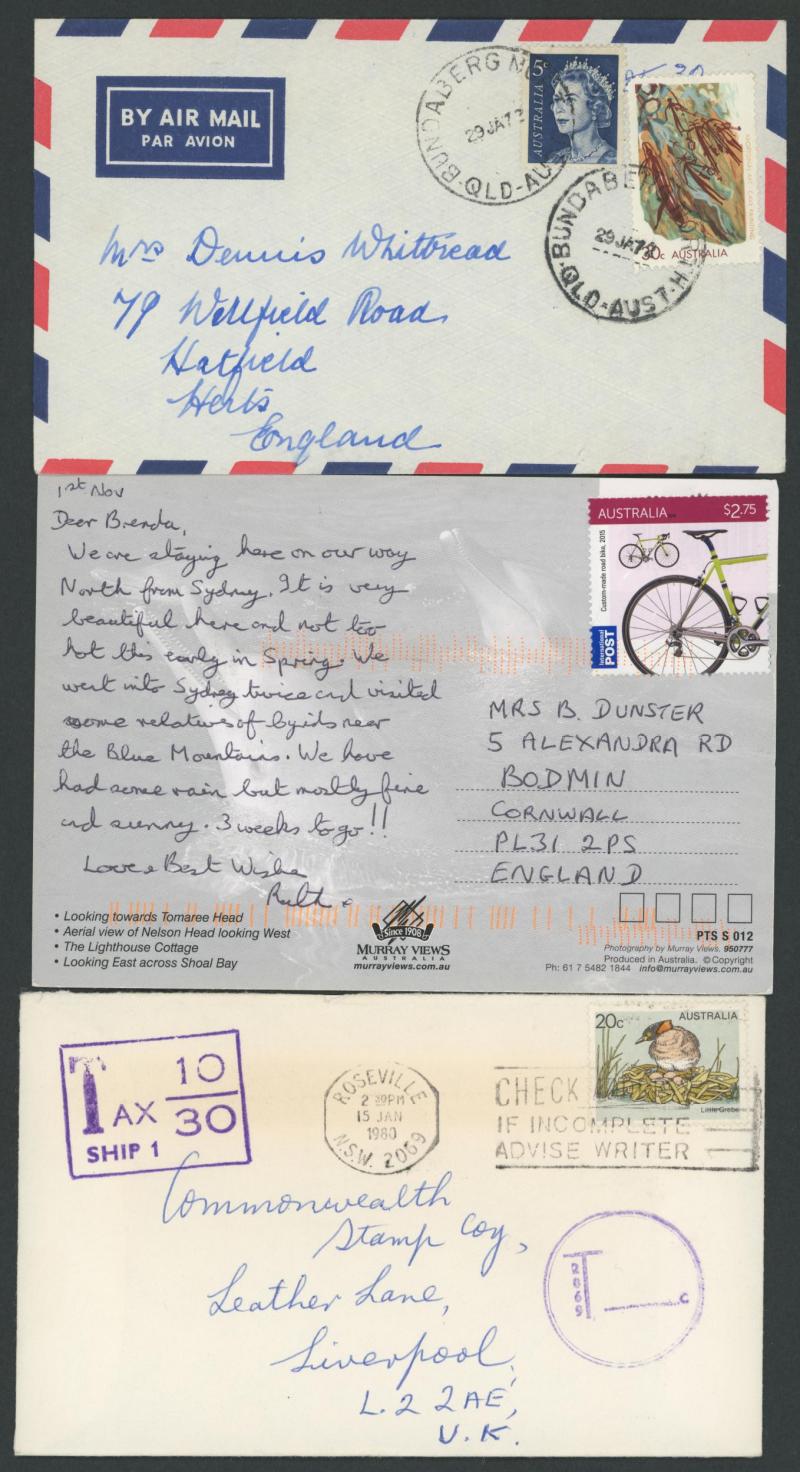 BY AIR MAIL
PAR AVION
BUNDABERG
29 JA 73
QLD-AUST
5c
AUSTRALIA
BUNDABE
29 JA 73
QLD-AUST
30c AUSTRALIA
Mrs Dennis Whitbread
79 Wellfield Road
Hatfield
Herts
England
1st Nov
Dear Brenda,
We are staying here on our way
North from Sydney. It is very
beautiful here and not too
hot this early in Spring. We
went into Sydney twice and visited
some relatives of
the Blue Mountains. We have
had some rain but mostly fine
and sunny. 3 weeks to go!!
Love & Best Wishes
Ruth x
AUSTRALIA $2.75
Custom-made road bike, 2015
International
POST
MRS B. DUNSTER
5 ALEXANDRA RD
BODMIN
CORNWALL
PL31 2PS
ENGLAND
• Looking towards Tomaree Head
• Aerial view of Nelson Head looking West
• The Lighthouse Cottage
• Looking East across Shoal Bay
Since 1908
MURRAY VIEWS
AUSTRALIA
murrayviews.com.au
PTS S 012
Photography by Murray Views. 950777
Produced in Australia. © Copyright
Ph: 61 7 5482 1844 info@murrayviews.com.au
TAX 10
30
SHIP 1
ROSEVILLE
2 30PM
15 JAN
1980
N.S.W. 2069
CHECK
IF INCOMPLETE
ADVISE WRITER
20c AUSTRALIA
Little Grebe
Commonwealth
Stamp Coy,
Leather Lane,
Liverpool,
L.2 2AE,
U.K.
T
2069
c